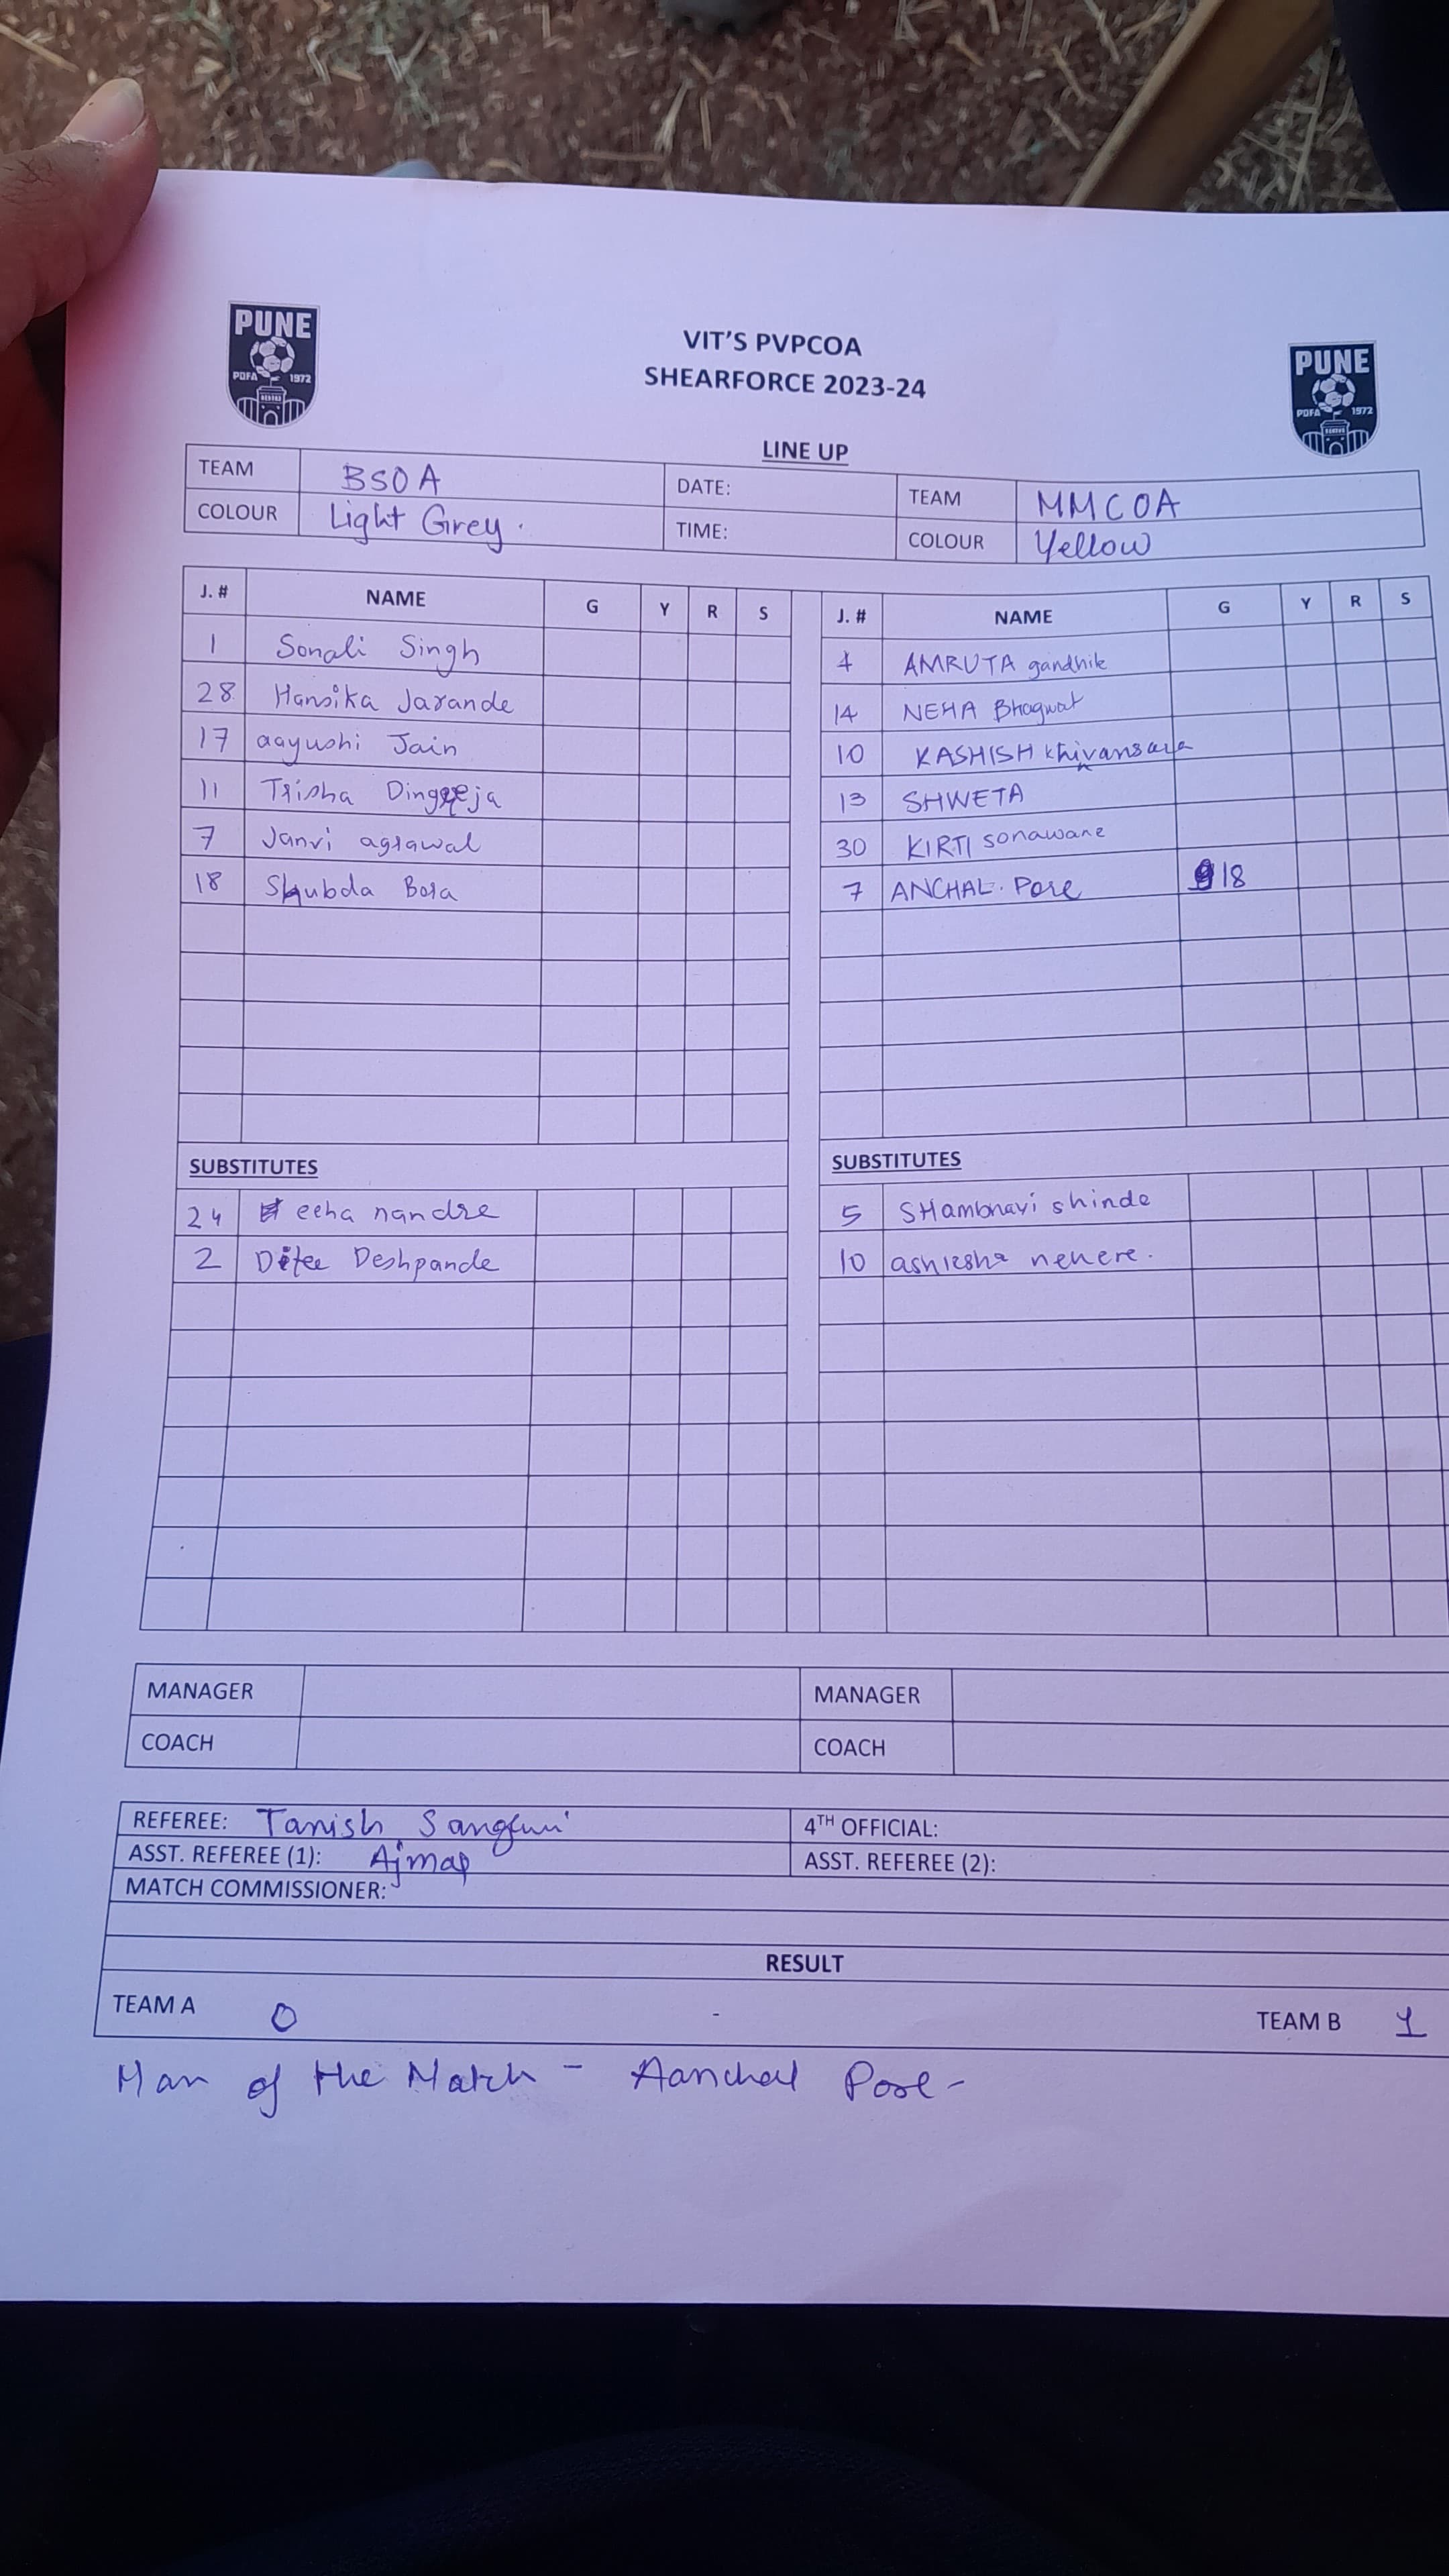 PUNE
PDFA 1972
VIT'S PVPCOA
SHEARFORCE 2023-24
PUNE
PDFA 1972
LINE UP
TEAM BSOA DATE: TEAM MMCOA
COLOUR Light Grey. TIME: COLOUR Yellow
J. # NAME G Y R S J. # NAME G Y R S
1 Sonali Singh AMRUTA gandhile
28 Hansika Jarande 14 NEHA Bhagwat
17 aayushi Jain 10 KASHISH Khivansara
11 Trisha 13 SHWETA
7 Janvi agrawal 30 KIRTI sonawane
18 Shubda Bora 7 ANCHAL. Pore 18
SUBSTITUTES SUBSTITUTES
24 nandre 5 SHambhavi shinde
2 Deshpande 10 nehere.
MANAGER MANAGER
COACH COACH
REFEREE: Tanish 4TH OFFICIAL:
ASST. REFEREE (1): ASST. REFEREE (2):
MATCH COMMISSIONER:
RESULT
TEAM A 0 - TEAM B 1
Man of the Match - Aanchal Pore-